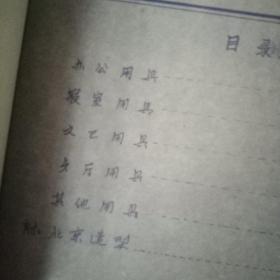 目录
办公用具
寝室用具
文艺用具
食厅用具
其他用具
附北京造型